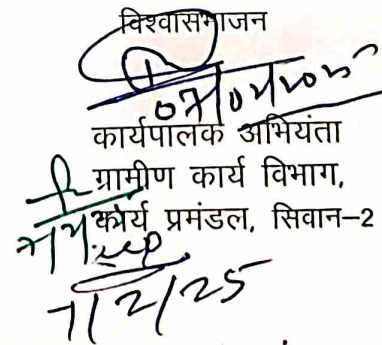 विश्वासभाजन
कार्यपालक अभियंता
ग्रामीण कार्य विभाग,
कार्य प्रमंडल, सिवान-2
7/2/25